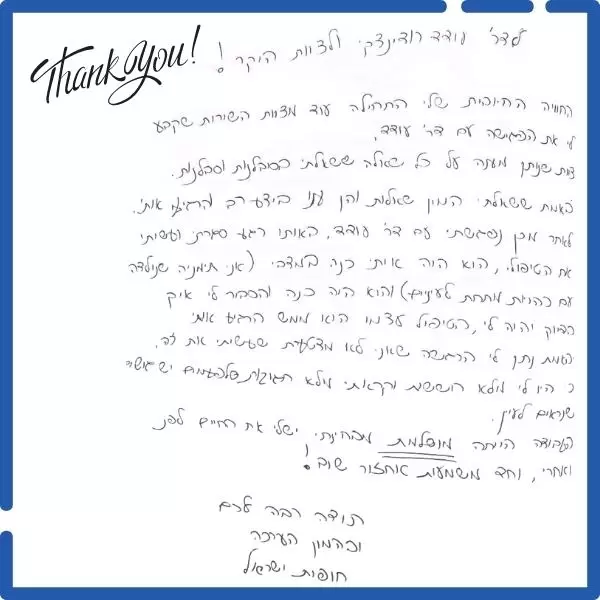 Thank You!
לדר' עודד רודינצקי ולצוות היקר!
החוויה החיובית שלי התחילה עוד מצוות השירות שקבע
לי את הפגישה עם דר' עודד,
צוות שנותן מענה על כל שאלה ששאלתי בסובלנות וסבלנות.
באמת ששאלתי המון שאלות והן ענו בידע רב והרגיעו אותי.
לאחר מכן נפגשתי עם דר' עודד, באותו רגע סגרתי ועשיתי
את הטיפול, הוא היה איתי כנה במלבד (אני תימניה שנולדה
עם כהויות מתחת לעיניים) והוא היה כנה והסביר לי איך
בדיוק יהיה לי, בטיפול עצמו הוא ממש הרגיע אותי
ובאמת נתן לי הרגשה שאני לא מצטערת שעשיתי את זה.
כי היו לי מלא חששות וקראתי מלא תגובות שלפעמים יש גושים
שנראים לעין.
העבודה הייתה מושלמת מבחינתי, יש לי את החיים לפני
ואחרי, וחד משמעית אחזור שוב!
תודה רבה לכם
ובהמון הערכה
חופית ישראל